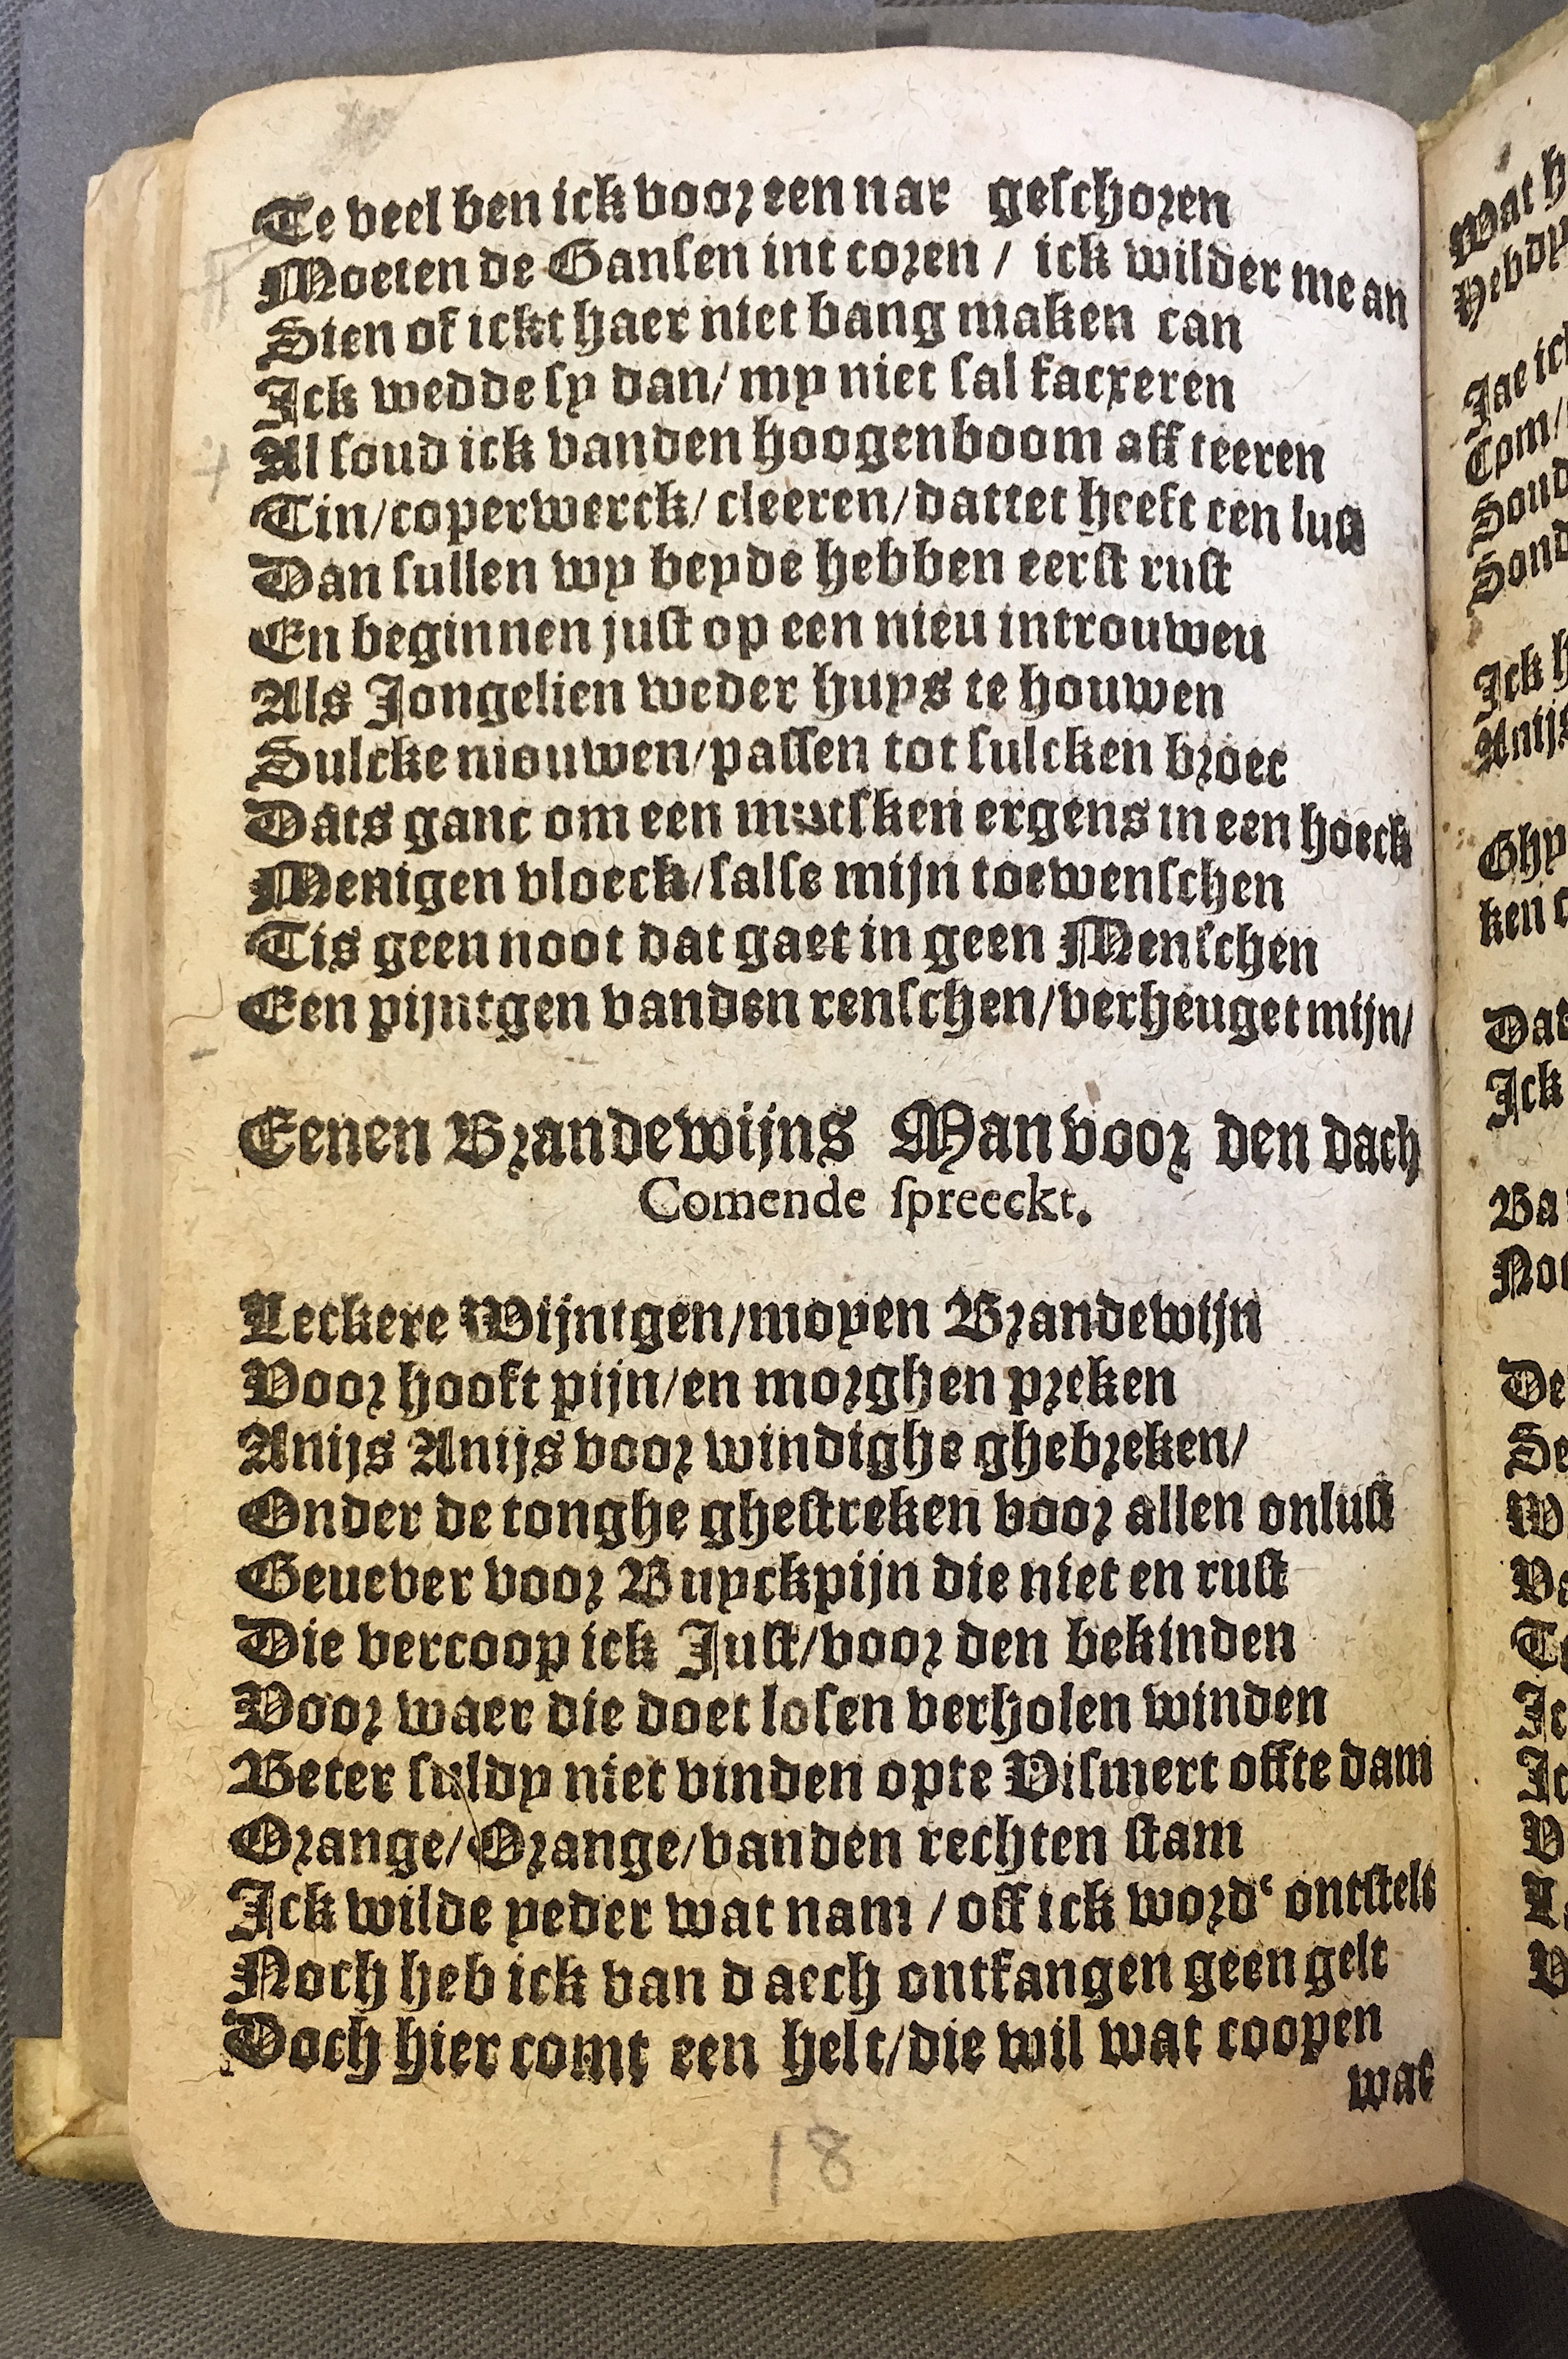 Te veel ben ick voor een nar geschoren
Moeten de Gansen int coren / ick wilder me an
Sien of ickt haer niet bang maken can
Ick wedde sy dan/ my niet sal facxeren
Al soud ick vanden hoogenboom aff teeren
Tin/coperwerck/ cleeren/dattet heeft een lust
Dan sullen wy beyde hebben eerst rust
En beginnen just op een nieu introuweu
Als Jongelien weder huys te houwen
Sulcke mouwen/passen tot sulcken broec
Dats ganc om een mutsken ergens in een hoeck
Menigen vloeck/salse mijn toewenschen
Tis geen noot dat gaet in geen Menschen
Een pijntgen vanden renschen/verheuget mijn/
Eenen Brandewijns Man voor den dach
Comende spreeckt.
Leckere Wijntgen/moyen Brandewijn
Voor hooft pijn/en morghen preken
Anijs Anijs voor windighe ghebreken/
Onder de tonghe ghestreken voor allen onlust
Geuever voor Buyckpijn die niet en rust
Die vercoop ick Just/voor den bekinden
Voor waer die doet losen verholen winden
Beter suldy niet vinden opte Vismert offte dam
Orange/Orange/vanden rechten stam
Ick wilde yeder wat nam / off ick word‘ ontstelt
Noch heb ick van daech ontfangen geen gelt
Doch hier comt een helt/die wil wat coopen
wat
18
Wat
Hebdy
Jae ick
Com/
Ick h
Anijs
Ghy
ken
Dat
Ick
Ba
De
Se